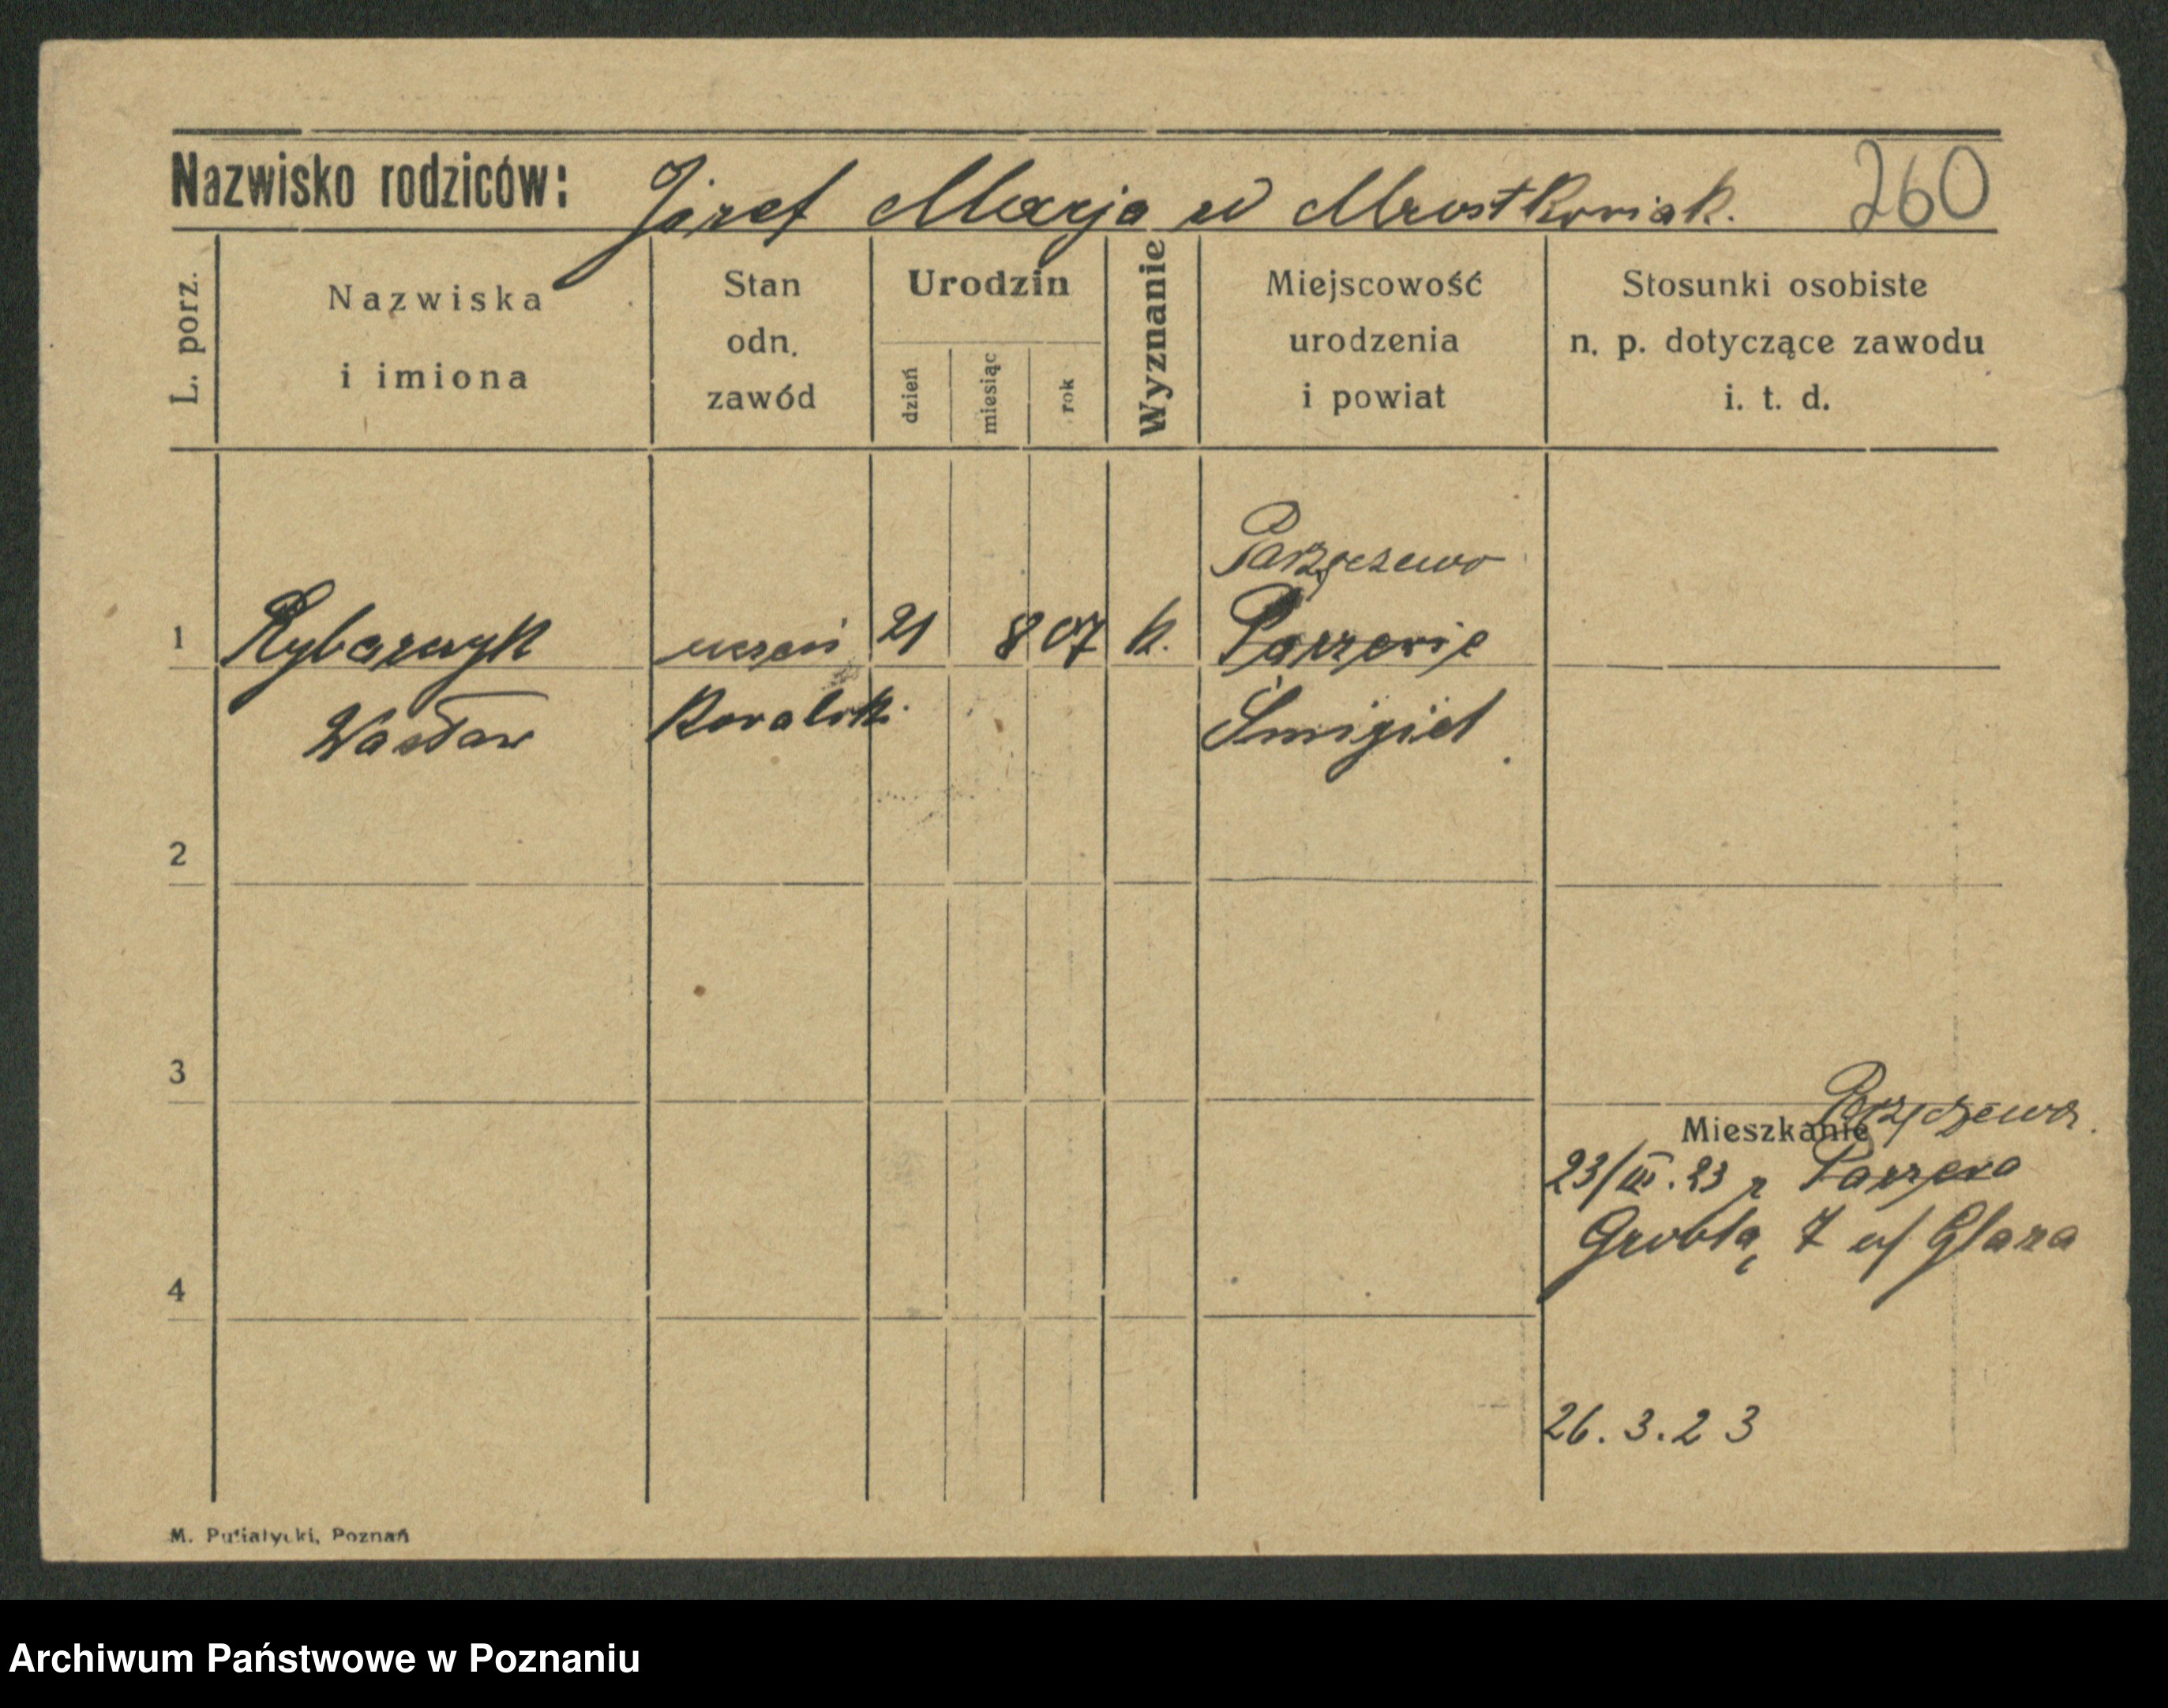 Nazwisko rodziców: Józef Marja w Mrostkowiak. 260
L. porz.
Nazwiska
i imiona
Stan
odn.
zawód
Urodzin
dzień
miesiąc
rok
Wyznanie
Miejscowość
urodzenia
i powiat
Stosunki osobiste
n. p. dotyczące zawodu
i. t. d.
Parzęczewo
1 Rybarczyk uczeń 21 8 07 k.
Wacław kowalski Śmigiel
2
3
Parzęczewo
Mieszkanie
23/III.23 z
Grobla 7 u/ Glaza
4
26.3.23
M. Putiatycki, Poznań
Archiwum Państwowe w Poznaniu